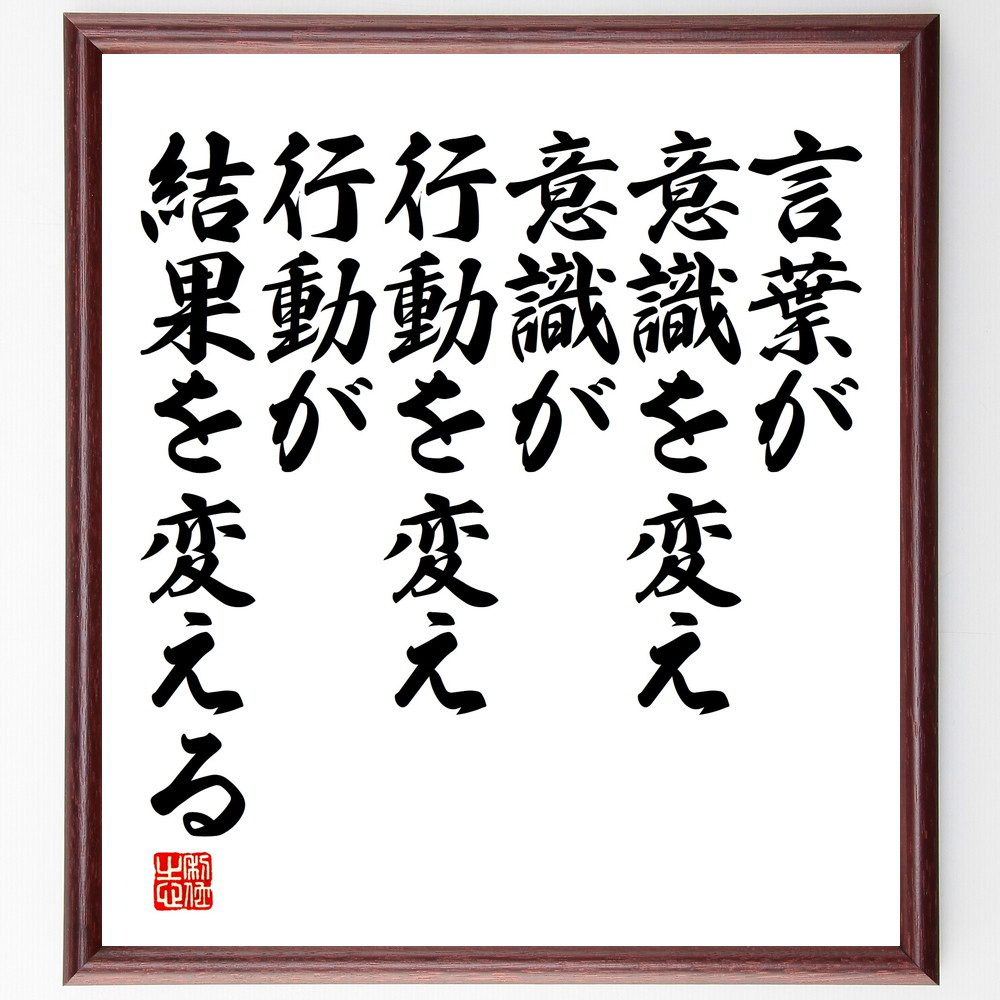 言葉が
意識を変え
意識が
行動を変え
行動が
結果を変える